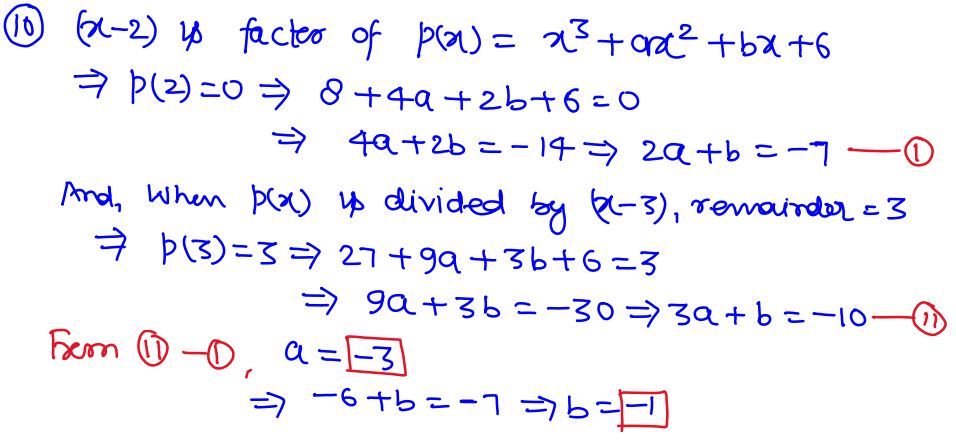 ⑩ (x-2) is factor of p(x) = x³ + ax² + bx + 6
⇒ p(2) = 0 ⇒ 8 + 4a + 2b + 6 = 0
⇒ 4a + 2b = -14 ⇒ 2a + b = -7 — ①
And, When p(x) is divided by (x-3), remainder = 3
⇒ p(3) = 3 ⇒ 27 + 9a + 3b + 6 = 3
⇒ 9a + 3b = -30 ⇒ 3a + b = -10 — ⑪
From ⑪ - ①, a = -3
⇒ -6 + b = -7 ⇒ b = -1